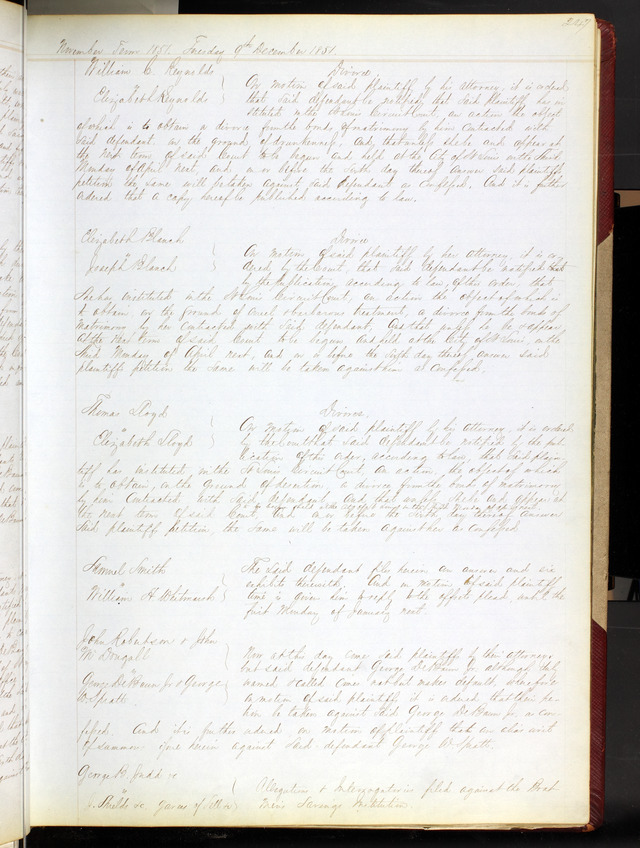 247
November Term 1851. Tuesday 9th December 1851
William C. Reynolds
Divorce
"
Elizabeth Reynolds
On motion of said plaintiff by his attorney, it is ordered
that said defendant be notified, that said plaintiff has in
stituted in the St Louis Circuit Court, an action the object
of which is to obtain a divorce from the bonds of matrimony by him contracted with
said defendant, on the ground of drunkenness, And that unless she be and appear at
the next term of said Court to be begun and held at the City of St Louis on the third
Monday of April next, and on or before the sixth day thereof answer said plaintiffs
petition the same will be taken against said defendant as confessed. And it is further
ordered that a copy hereof be published according to law.
Elizabeth Blanch
Divorce
"
Joseph Blanch
On motion of said plaintiff by her attorney, it is or
dered by the Court, that said defendant be notified
by the publication according to law, of this order, that
She has instituted in the St Louis Circuit Court, an action the object of which is
to obtain, on the ground of cruel & barbarous treatment, a divorce from the bonds of
matrimony by her contracted with said defendant, And that unless he be & appear
at the next term of said Court to be begun and held at the City of St Louis, on the
third Monday of April next, and on or before the sixth day thereof answer said
plaintiffs petition the same will be taken against him as confessed.
Thomas Lloyd
Divorce.
"
Elizabeth Lloyd
On motion of said plaintiff by his attorney, it is ordered
by the Court that said defendant be notified by the pub
lication of this order, according to law, that said plain-
tiff has instituted in the St Louis Circuit Court, An action, the object of which
is to obtain, on the ground of desertion a divorce from the bonds of matrimony
by him contracted with said defendant, And that unless she be and appear at
to be begun & held at the City of St Louis on the third Monday of April next
the next term of said Court and on or before the sixth day thereof answer
said plaintiffs petition, the same will be taken against her as confessed
Samuel Smith
"
William H. Whitmarsh
The said defendant files herein an answer and six
exhibits therewith. And on motion of said plaintiff
time is given him to reply to the offsets plead, until the
first Monday of January next.
John Robertson & John
McDougall
"
George DeBaun Jr & George
W Spratt
Now at this day come said plaintiffs by their attorney
but said defendant George DeBaun Jr although duly
named & called comes not but makes default wherefore
on motion of said plaintiffs it is ordered that their pe-
tition be taken against said George DeBaun Jr as con-
fessed. And it is further ordered on motion of plaintiff that an alias writ
of summons issue herein against said defendant George W Spratt.
George B. Judd &c
"
J. Shields &c
Allegations & Interrogatories filed against the Boat
Mens Savings Institution.